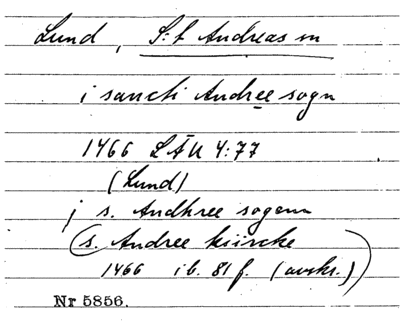 Lund, S:t Andreas sn
i sancti Andree sogn
1466 LÄU 4:77
(Lund)
j s. Andhree sogenn
(s. Andree kiircke
1466 ib. 81 f. (avskr.))
Nr 5856.